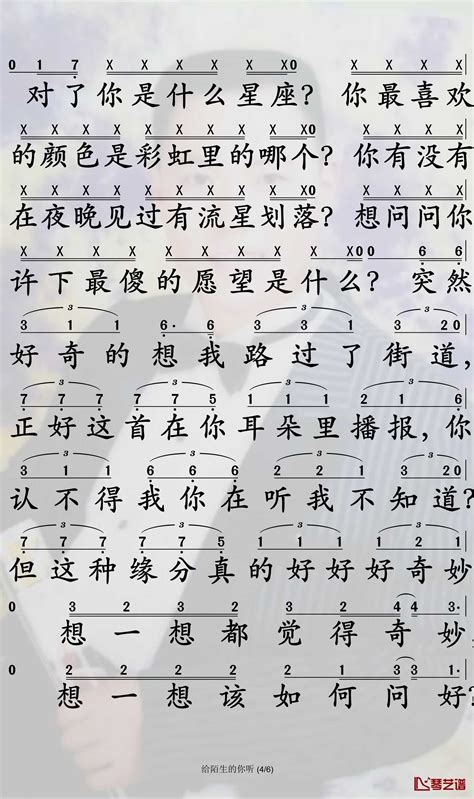 0 1 7 X X X X X X X X X X X
对了你是什么星座? 你最喜欢
X X X X X X X X X X0 X X X
的颜色是彩虹里的哪个? 你有没有
X X X X X X X X X X0 X X X X
在夜晚见过有流星划落? 想问问你
X X X X X X X X X X00 6 6
许下最傻的愿望是什么? 突然
3 1 1 6· 6 3 3 1 3 20
好奇的想我路过了街道,
7 7 7 7 7 5 1 1 1 2 1 6
正好这首在你耳朵里播报,你
3 1 1 6 6 6 2 2 1 3 20
认不得我你在听我不知道?
7 7 7 7 7 5 1 1 1 1 1 1
但这种缘分真的好好好奇妙
0 3 2 2 2 2 4 4 3·
想一想都觉得奇妙,
0 2 2 2 2 2 1 3 3 1·
想一想该如何问好?
给陌生的你听 (4/6)
琴艺谱